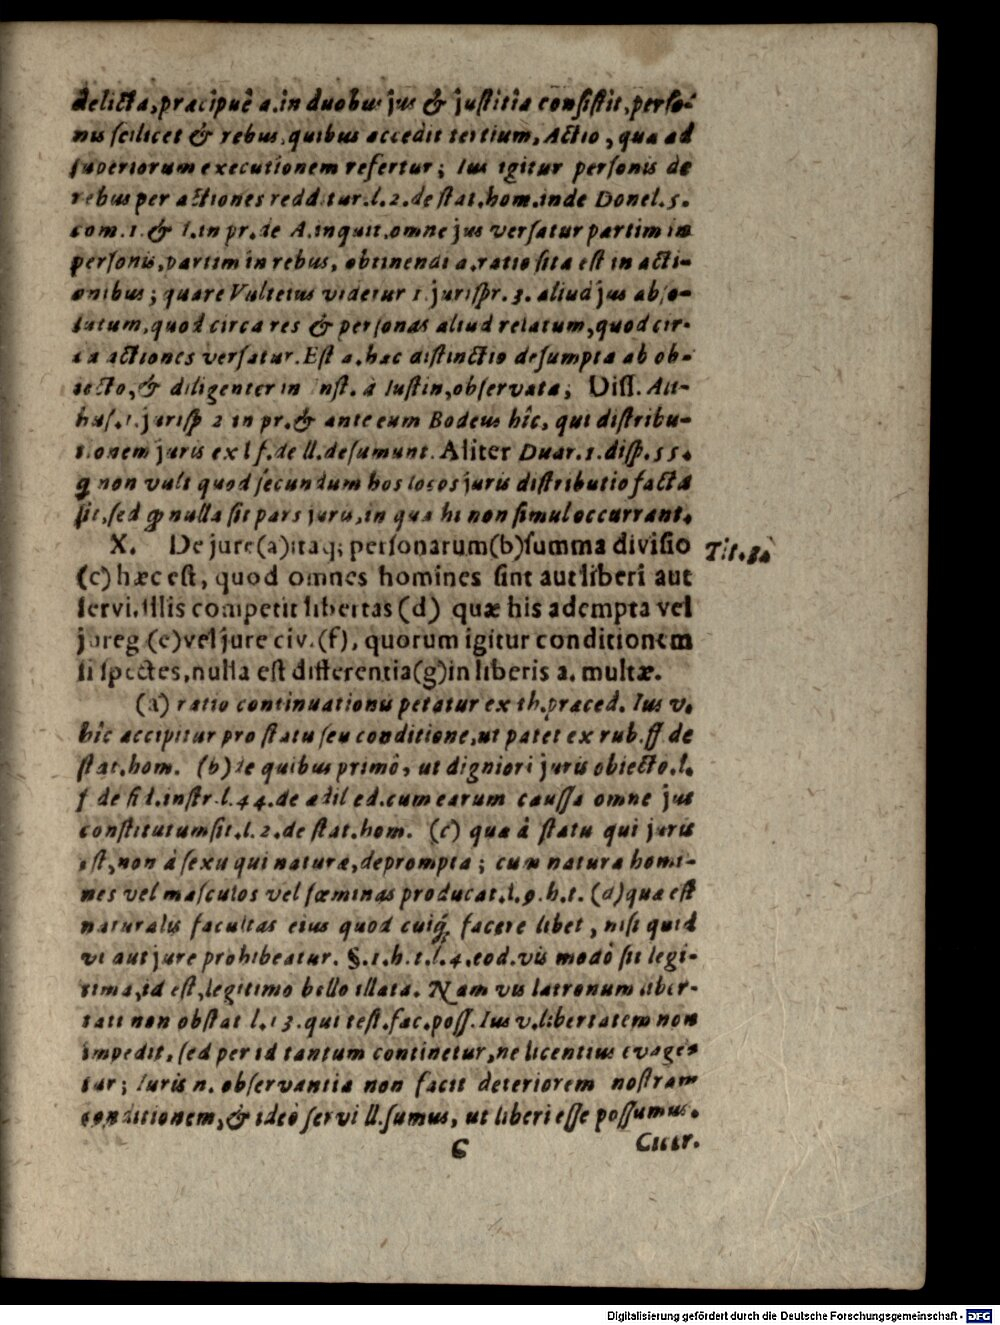 delicta, præcipuê a. in duobus jus & justitia consistit, perso-
nis scilicet & rebus, quibus accedit tertium, Actio, qua ad
superiorum executionem refertur; Ius igitur personis de
rebus per actiones redditur. l. 2. de stat. hom. inde Donel. 5.
com. 1. & l. in pr. de A. inquit, omne jus versatur partim in
personis, partim in rebus, obtinendi a. ratio sita est in acti-
onibus; quare Vulteius videtur 1. jurispr. 3. aliud jus abso-
lutum, quod circa res & personas aliud relatum, quod cir-
ca actiones versatur. Est a. hac distinctio desumpta ab ob-
iecto, & diligenter in Inst. à Iustin, observata; Diss. Alt-
hus. 1. jurisp 2 in pr. & ante eum Bodeus hîc, qui distribu-
tionem juris ex l f. de ll. desumunt. Aliter Duar. 1. disp. 55.
ꝙ non vult quod secundum hos locos juris distributio facta
sit, sed ꝙ nulla sit pars juris, in qua hi non simul occurrant.
X. De jure (a) itaq; personarum (b) summa divisio
Tit. 3.
(c) hæc est, quod omnes homines sint aut liberi aut
servi. Illis competit libertas (d) quæ his adempta vel
jureg (e) vel jure civ. (f), quorum igitur conditionem
si spectes, nulla est differentia (g) in liberis a. multæ.
(a) ratio continuationis petatur ex th. præced. Ius v.
hîc accipitur pro statu seu conditione, ut patet ex rub. ff de
stat. hom. (b) de quibus primò, ut digniori juris obiecto. l.
f de fid. instr. l. 44. de ædil ed. cum earum caussa omne jus
constitutum sit. l. 2. de stat. hom. (c) qua à statu qui juris
est, non à sexu qui naturæ, deprompta; cum natura homi-
nes vel masculos vel fœminas producat. l. 9. h. t. (d) qua est
naturalis facultas eius quod cuiq; facere libet, nisi quid
vi aut jure prohibeatur. §. 1. h. t. l. 4. eod. vis modò sit legi-
tima, id est, legitimo bello illata. Nam vis latronum liber-
tati non obstat l. 13. qui test. fac. poss. Ius v. libertatem non
impedit, sed per id tantum continetur, ne licentius evage-
tur; Iuris n. observantia non facit deteriorem nostram
conditionem, & ideò servi ll. sumus, ut liberi esse possumus.
C
Cuur.
Digitalisierung gefördert durch die Deutsche Forschungsgemeinschaft - DFG